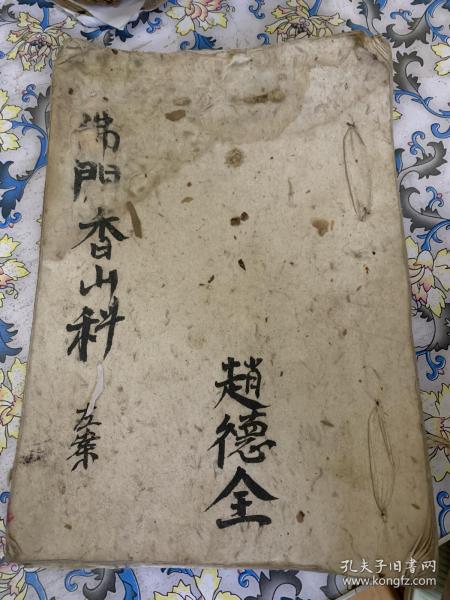 佛門香山科
左案
趙德全
孔夫子旧书网
www.kongfz.com